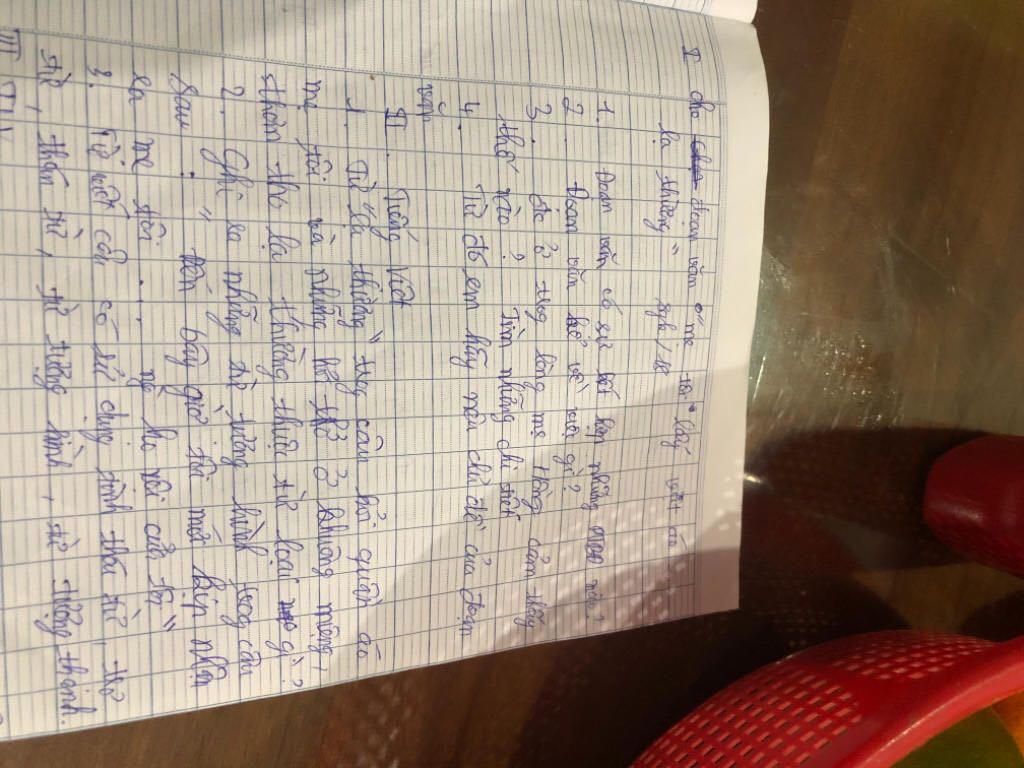 I Cho đoạn văn " mẹ tôi lấy vạt áo
lạ thường " sgk/18
1. Đoạn văn có sự kết hợp những PTBĐ nào?
2. Đoạn văn kể về nội gì?
3. Khi ở trog lòng mẹ Hồng cảm thấy
thế nào? Tìm những chi tiết
4. Từ đó em hãy nêu chủ đề của đoạn
văn
II. Tiếng Việt
1. Từ "lạ thường" trog câu hơi quần áo
mẹ tôi và những hơi thở ở khuôn miệng,
thơm tho lạ thường thuộc từ loại gì?
2. Ghi ra những từ tượng hình trog câu
sau: " Đến bây giờ tôi mới kịp nhận
ra mẹ tôi ... họ nội của tôi"
3. Từ viết câu có sử dụng tình thái từ, trợ
từ, thán từ, từ tượng hình, từ tượng thanh.
III